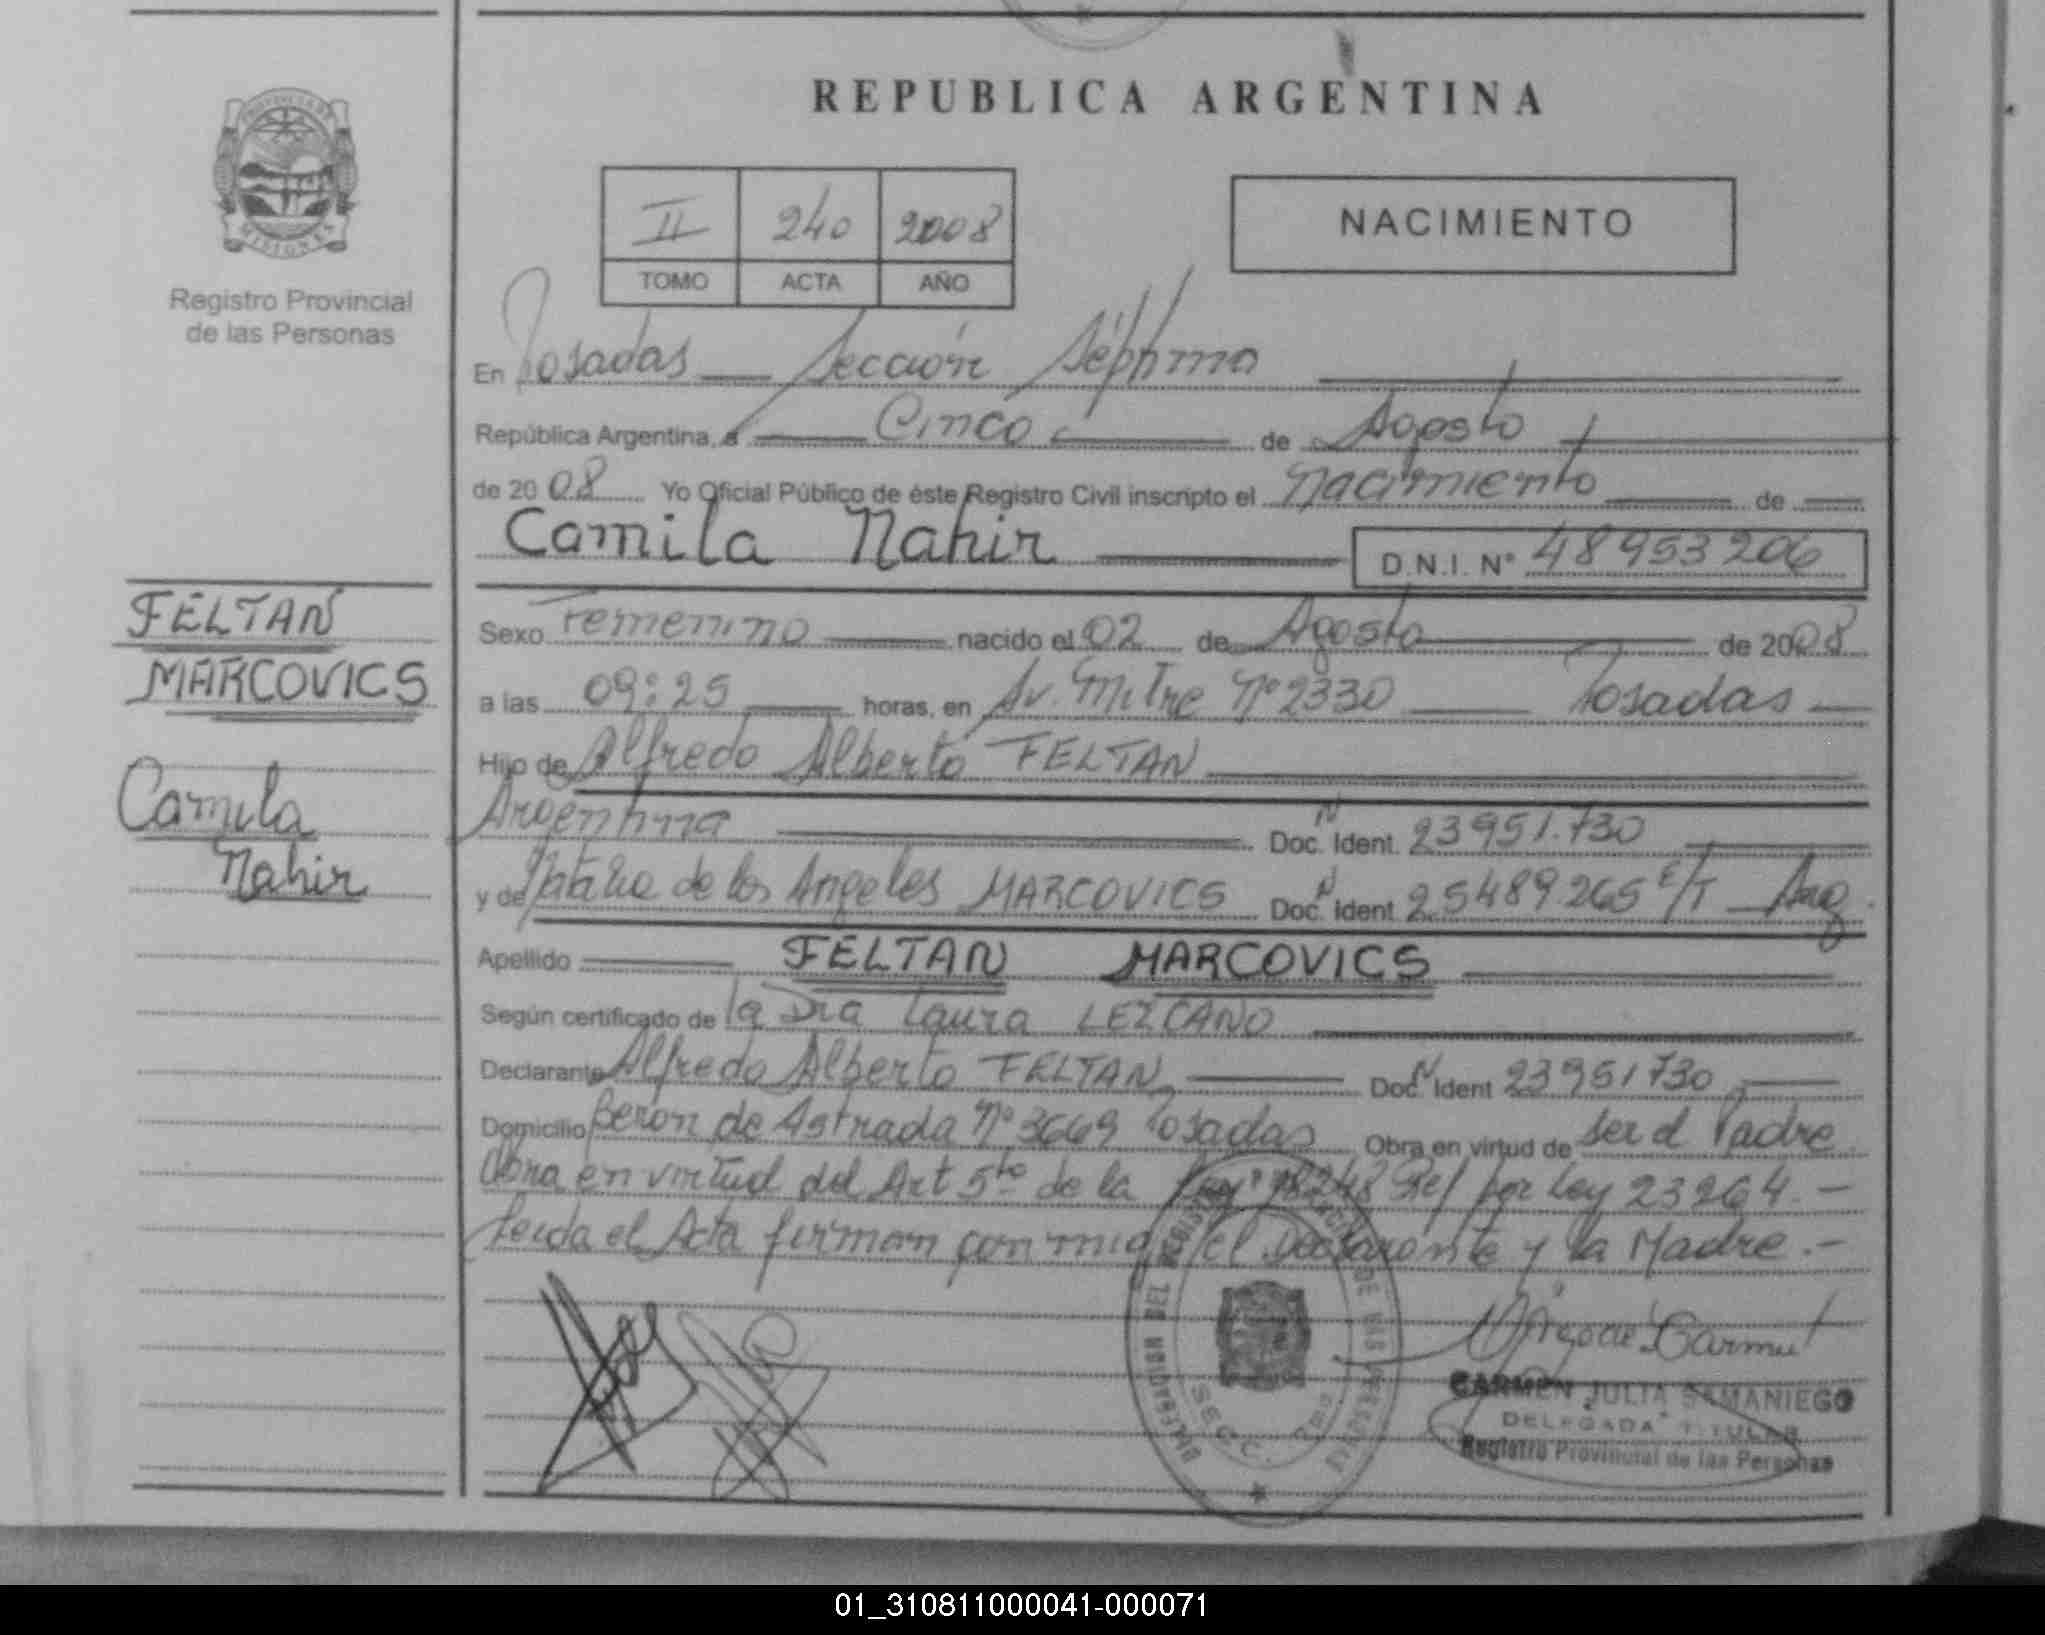 REPUBLICA ARGENTINA
PROVINCIA DE
MISIONES
Registro Provincial
de las Personas
II 240 2008
TOMO ACTA AÑO
NACIMIENTO
En Posadas Sección Séptima
República Argentina, a Cinco de Agosto
de 2008 Yo Oficial Público de éste Registro Civil inscripto el Nacimiento de
Camila Nahir D.N.I. Nº 48953206
FELTAN
MARCOVICS
Camila
Nahir
Sexo Femenino nacido el 02 de Agosto de 2008
a las 09:25 horas, en Av. Mitre Nº 2330 Posadas
Hijo de Alfredo Alberto FELTAN
Argentina Doc. N Ident. 23951.730
y de Natalia de los Angeles MARCOVICS Doc. N Ident 25489.265 E/T Arg.
Apellido FELTAN MARCOVICS
Según certificado de la Dra Laura LEZCANO
Declarante Alfredo Alberto FELTAN Doc. N Ident 23951730
Domicilio Beron de Astrada Nº 3669 Posadas Obra en virtud de ser el Padre.
Obra en virtud del Art 5to de la Ley 18248 Ref por Ley 23264.-
Leida el Acta firman conmigo el Declarante y la Madre.-
CARMEN JULIA SAMANIEGO
DELEGADA TITULAR
Registro Provincial de las Personas
SECC.
01_310811000041-000071